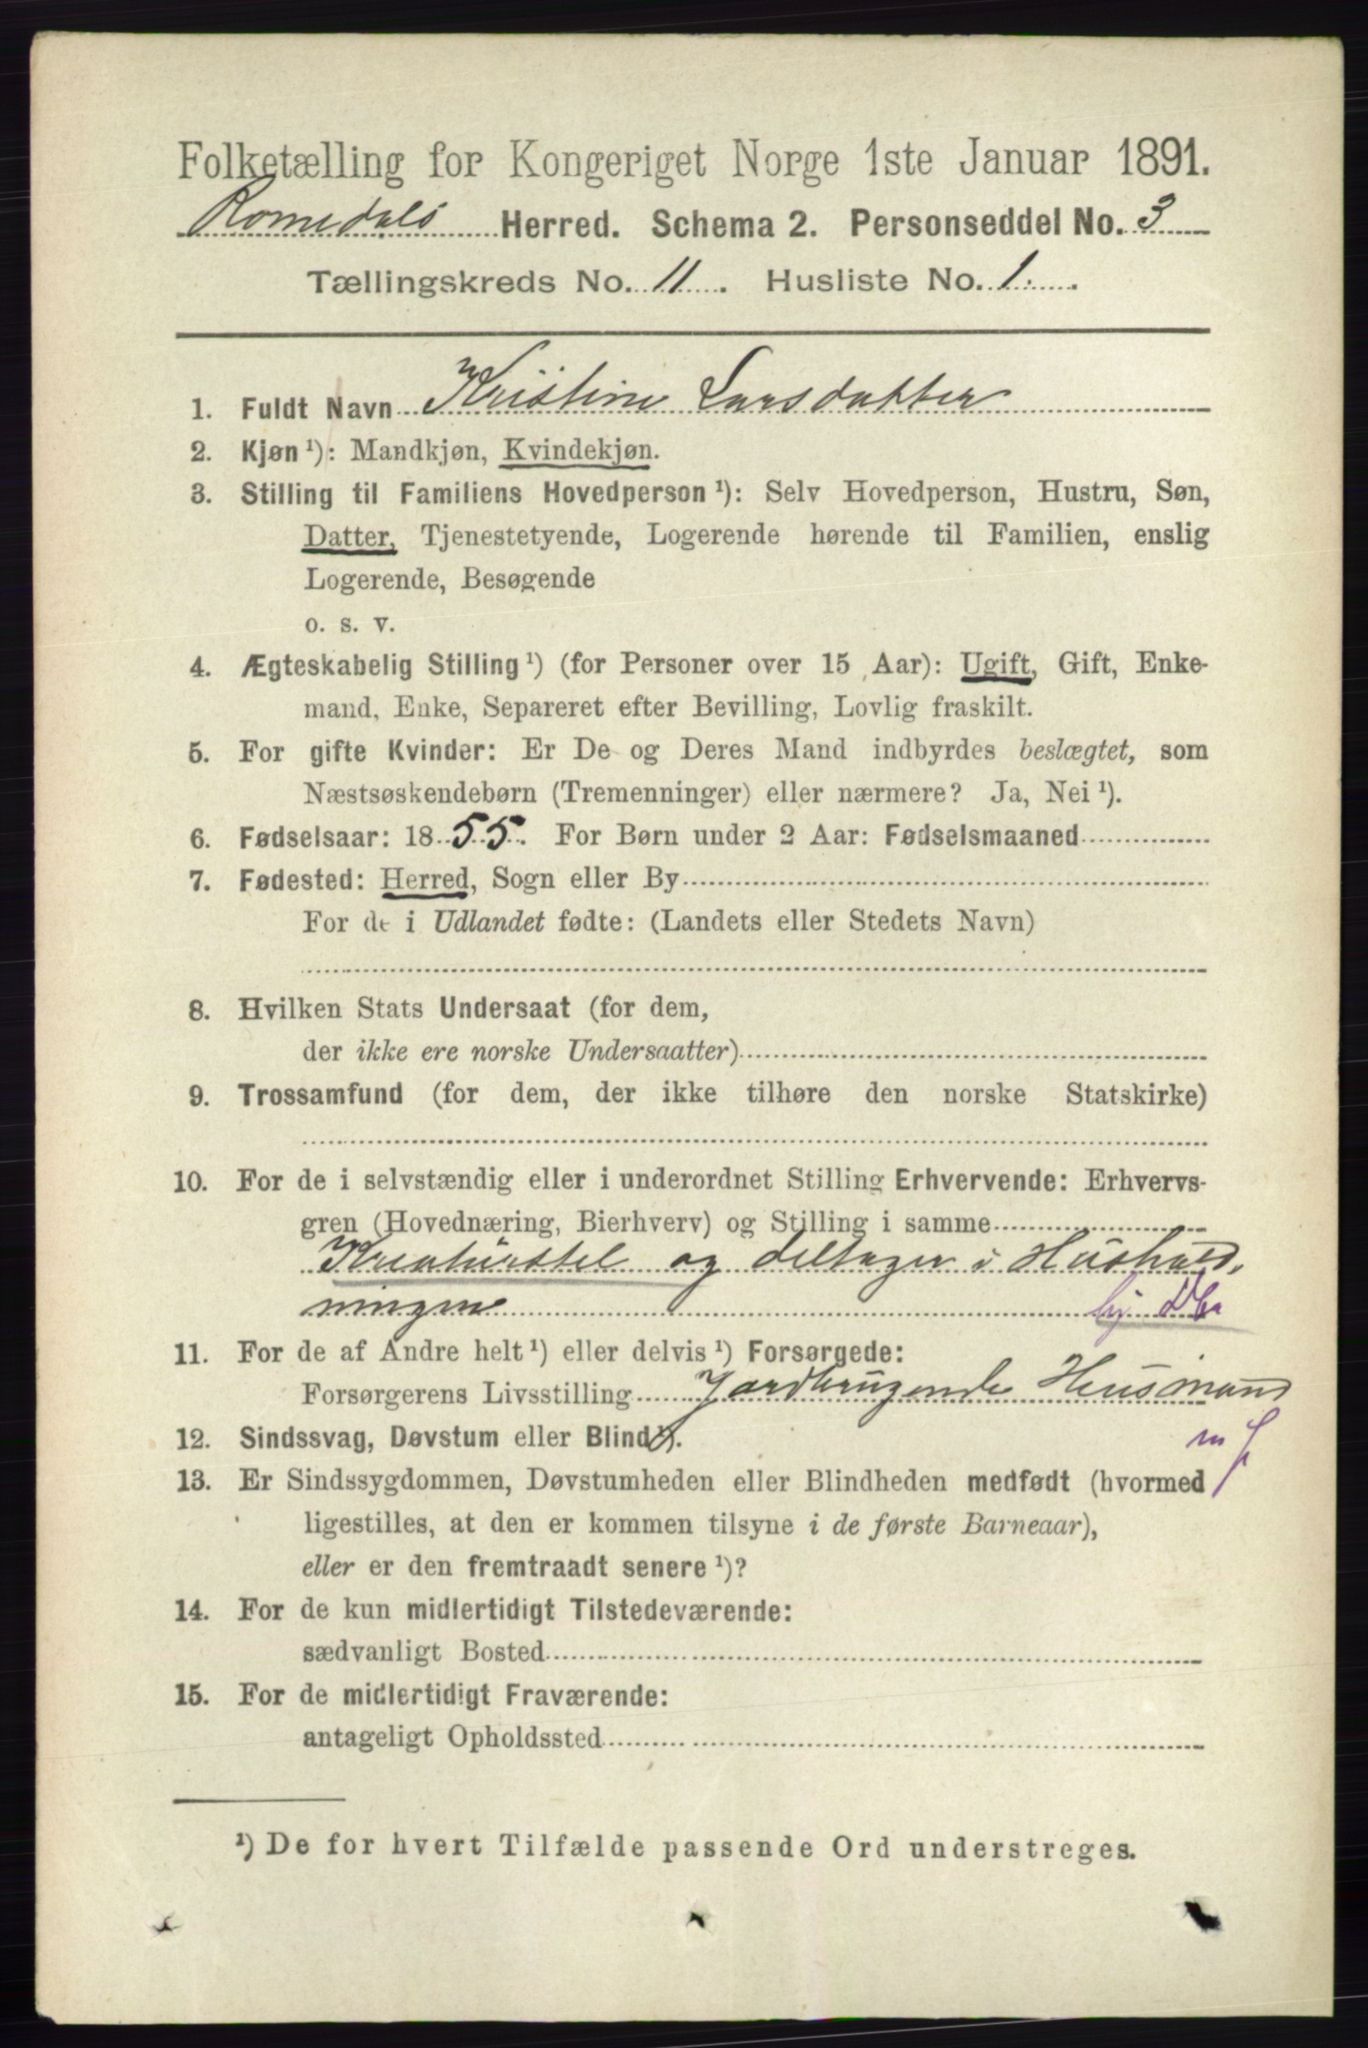 Folketælling for Kongeriget Norge 1ste Januar 1891.
Romedals Herred. Schema 2. Personseddel No. 3
Tællingskreds No. 11. Husliste No. 1.
1. Fuldt Navn Kristine Larsdatter
2. Kjøn ¹): Mandkjøn, Kvindekjøn.
3. Stilling til Familiens Hovedperson ¹): Selv Hovedperson, Hustru, Søn,
Datter, Tjenestetyende, Logerende hørende til Familien, enslig
Logerende, Besøgende
o. s. v.
4. Ægteskabelig Stilling ¹) (for Personer over 15 Aar): Ugift, Gift, Enke-
mand, Enke, Separeret efter Bevilling, Lovlig fraskilt.
5. For gifte Kvinder: Er De og Deres Mand indbyrdes beslægtet, som
Næstsøskendebørn (Tremenninger) eller nærmere? Ja, Nei ¹).
6. Fødselsaar: 1855. For Børn under 2 Aar: Fødselsmaaned
7. Fødested: Herred, Sogn eller By
For de i Udlandet fødte: (Landets eller Stedets Navn)
8. Hvilken Stats Undersaat (for dem,
der ikke ere norske Undersaatter)
9. Trossamfund (for dem, der ikke tilhøre den norske Statskirke)
10. For de i selvstændig eller i underordnet Stilling Erhvervende: Erhvervs-
gren (Hovednæring, Bierhverv) og Stilling i samme
Kreaturstel og deltager i Hushold-
ningen
11. For de af Andre helt ¹) eller delvis ¹) Forsørgede:
Forsørgerens Livsstilling Jordbrugende Husmand
12. Sindssvag, Døvstum eller Blind ¹).
13. Er Sindssygdommen, Døvstumheden eller Blindheden medfødt (hvormed
ligestilles, at den er kommen tilsyne i de første Barneaar),
eller er den fremtraadt senere ¹)?
14. For de kun midlertidigt Tilstedeværende:
sædvanligt Bosted
15. For de midlertidigt Fraværende:
antageligt Opholdssted
¹) De for hvert Tilfælde passende Ord understreges.